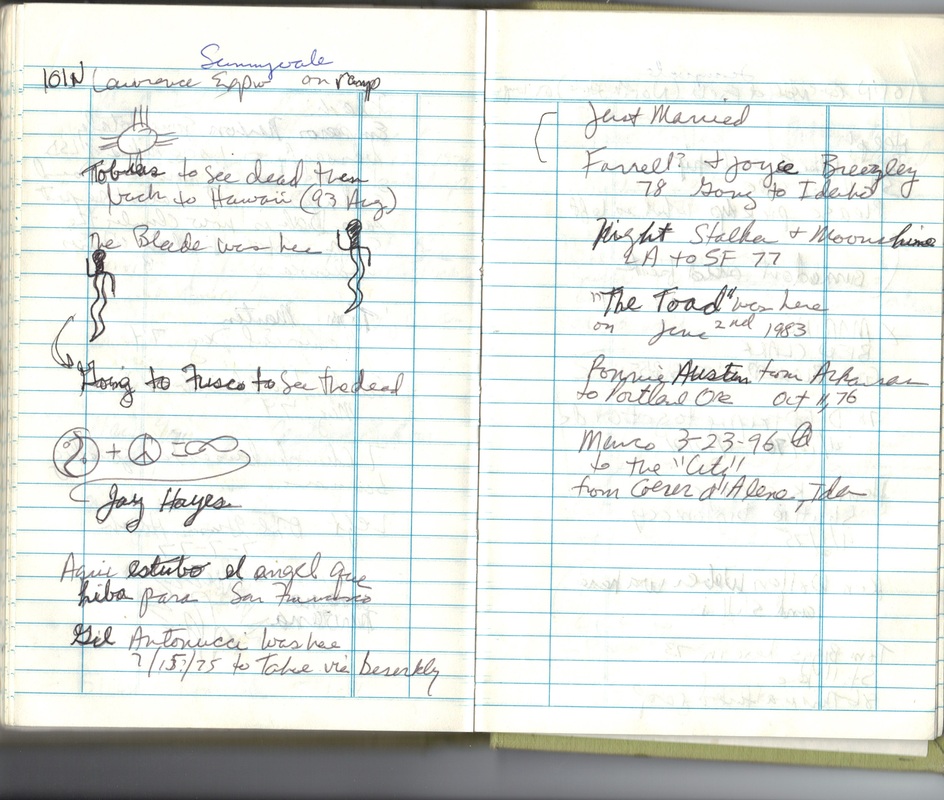 Sunnyvale
101N Lawrence Expw on ramp
to see dead then
back to Hawaii (93 Aug)
The Blade was here
Going to Frisco to see the dead
+ =
Jay Hayes
Aqui estubo el angel que
hiba para San Francisco
Gil Antonucci was here
7/15?/75 to Tahoe via beserkly
Just Married
Farrell? + Joyce Breezley
78 Going to Idaho
Night Stalker + Moonshine
LA to SF 77
"The Toad" was here
on June 2nd 1983
Ronnie Austin from Arkansas
to Portland Ore Oct 11, 76
Marco 3-23-96
to the "City"
from Coerer d'Alene, Ida